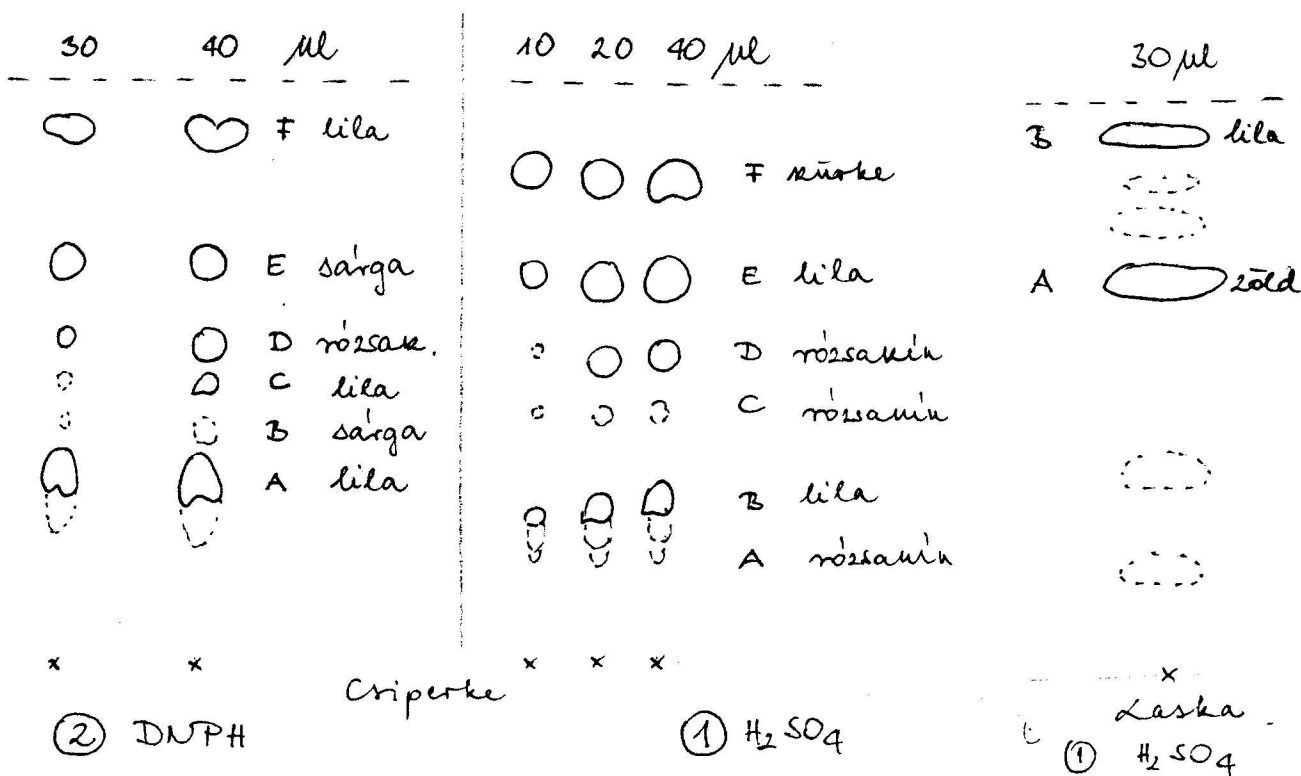 30 40 µl
F lila
E sárga
D rózsak.
C lila
B sárga
A lila
x x
② DNPH
10 20 40 µl
F szürke
E lila
D rózsaszín
C rózsaszín
B lila
A rózsaszín
x x x
Csiperke
① H2SO4
30 µl
B lila
A zöld
x
Laska
① H2SO4